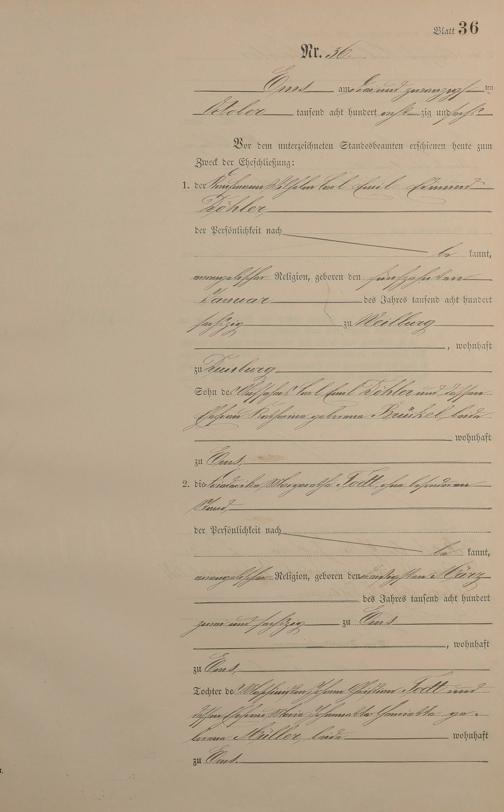 Blatt 36
Nr. 36
Ems am drei und zwanzigsten
Oktober tausend acht hundert acht zig und sechs
Vor dem unterzeichneten Standesbeamten erschienen heute zum
Zweck der Eheschließung:
1. der Kaufmann Wilhelm Carl Emil Edmund
Döhler
der Persönlichkeit nach
be kannt,
evangelischer Religion, geboren den fünfzehnten
Januar des Jahres tausend acht hundert
sechzig zu Weilburg
, wohnhaft
zu Duisburg
Sohn des Carl Emil Döhler und dessen
Ehefrau Katharina geborene Brückel, beide
wohnhaft
zu Ems.
2. die Margaretha Todt, ohne besonderen
Stand
der Persönlichkeit nach
be kannt,
evangelischer Religion, geboren den März
des Jahres tausend acht hundert
zwei und sechzig zu Ems
, wohnhaft
zu Ems,
Tochter des Johann Christian Todt und
dessen Ehefrau Maria Johannette Henriette ge-
borene Müller, beide wohnhaft
zu Ems.